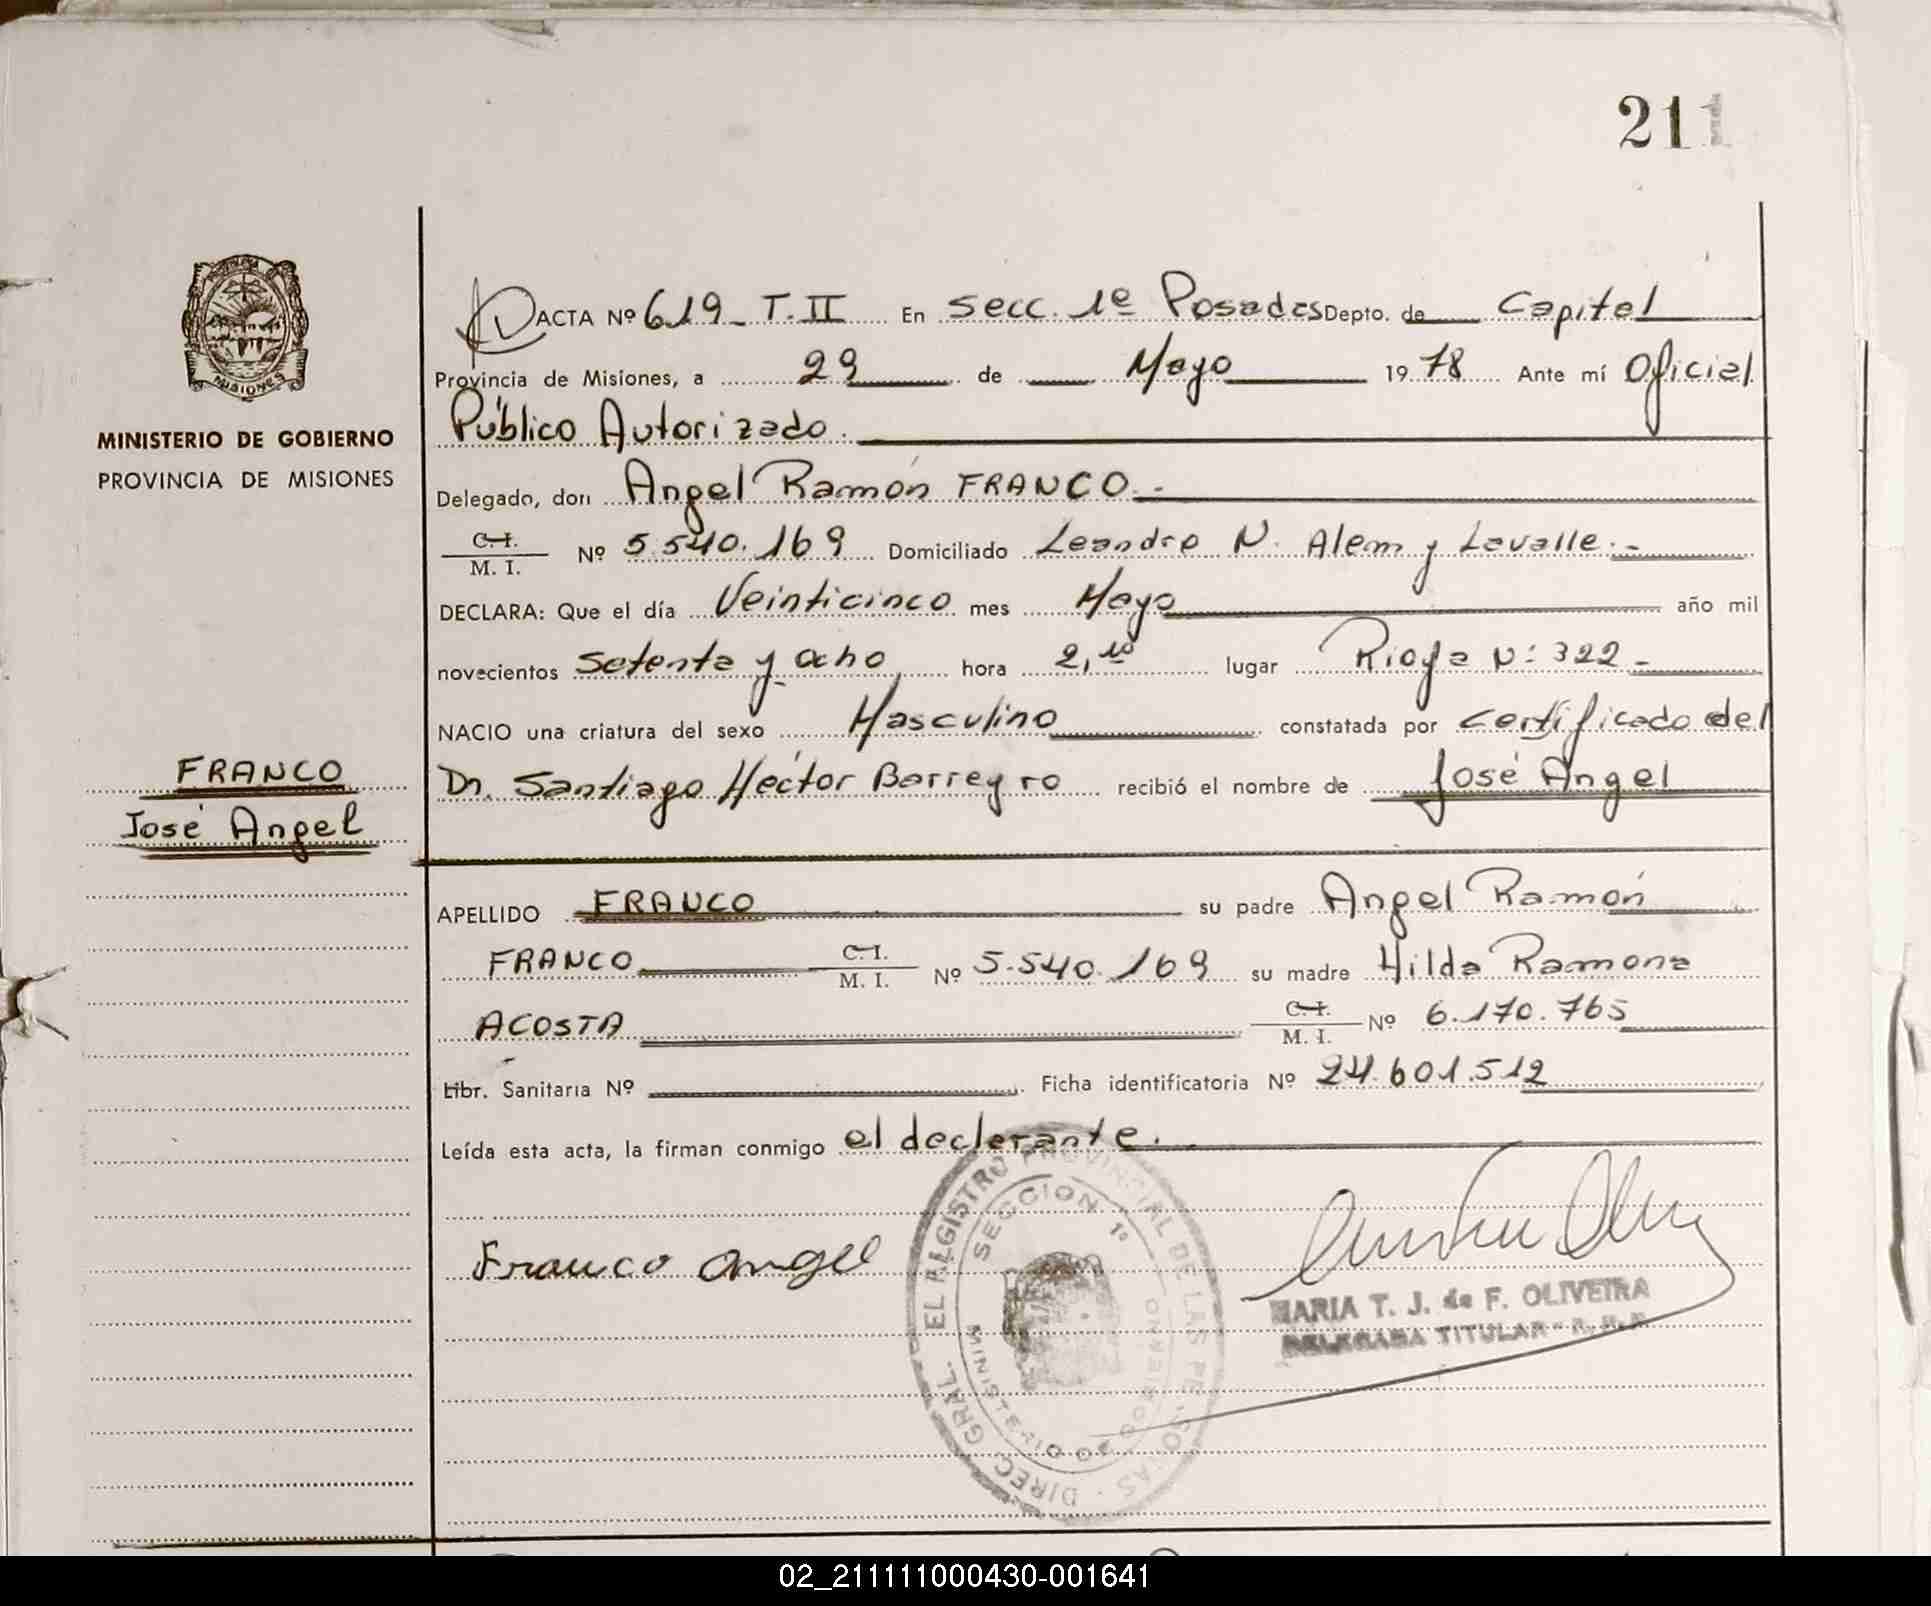 211
ACTA Nº 619 - T. II En Secc. 1º Posadas Depto. de Capital
Provincia de Misiones, a 29 de Mayo 1978 Ante mí Oficial
MINISTERIO DE GOBIERNO
PROVINCIA DE MISIONES
Público Autorizado.
Delegado, don Angel Ramón FRANCO.-
C. I.
M. I. Nº 5.540.169 Domiciliado Leandro N. Alem y Lavalle.-
DECLARA: Que el día Veinticinco mes Mayo año mil
novecientos setenta y ocho hora 2,10 lugar Rioja Nº 322-
NACIO una criatura del sexo Masculino constatada por certificado del
FRANCO
José Angel
Dr. Santiago Héctor Barreyro recibió el nombre de José Angel
APELLIDO FRANCO su padre Angel Ramón
FRANCO C. I. M. I. Nº 5.540.169 su madre Hilda Ramona
ACOSTA C. I. M. I. Nº 6.170.765
Libr. Sanitaria Nº Ficha identificatoria Nº 24.601.512
Leída esta acta, la firman conmigo el declarante.
Franco Angel
DIREC. GRAL. EL REGISTRO PROVINCIAL DE LAS PERSONAS
SECCION 1º
MINISTERIO DE GOBIERNO
MARIA T. J. de F. OLIVEIRA
DELEGADA TITULAR - R. P. P.
MISIONES
02_211111000430-001641